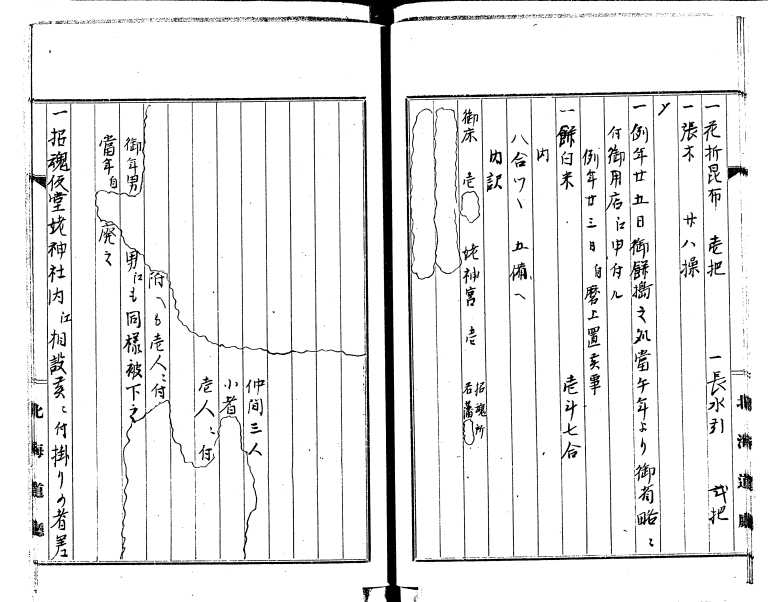 一花折昆布 壱把 一長水引 弐把
一張木 廿八操
〆
一例年廿五日御餅搗之処當午年より御省略ニ
付御用店江申付ル
例年廿三日自磨上置
一餅白米 壱斗七合
内
八合ツヽ 五備へ
内訳
御床 壱 姥神宮 壱 招魂所
仲間三人
小者
壱人ニ付
附ヘも壱人ニ付
男江も同様被下之
御年男
當年自
廃之
一招魂仮堂姥神社内江相設ニ付掛りの者差
北海道廳
北海道廳